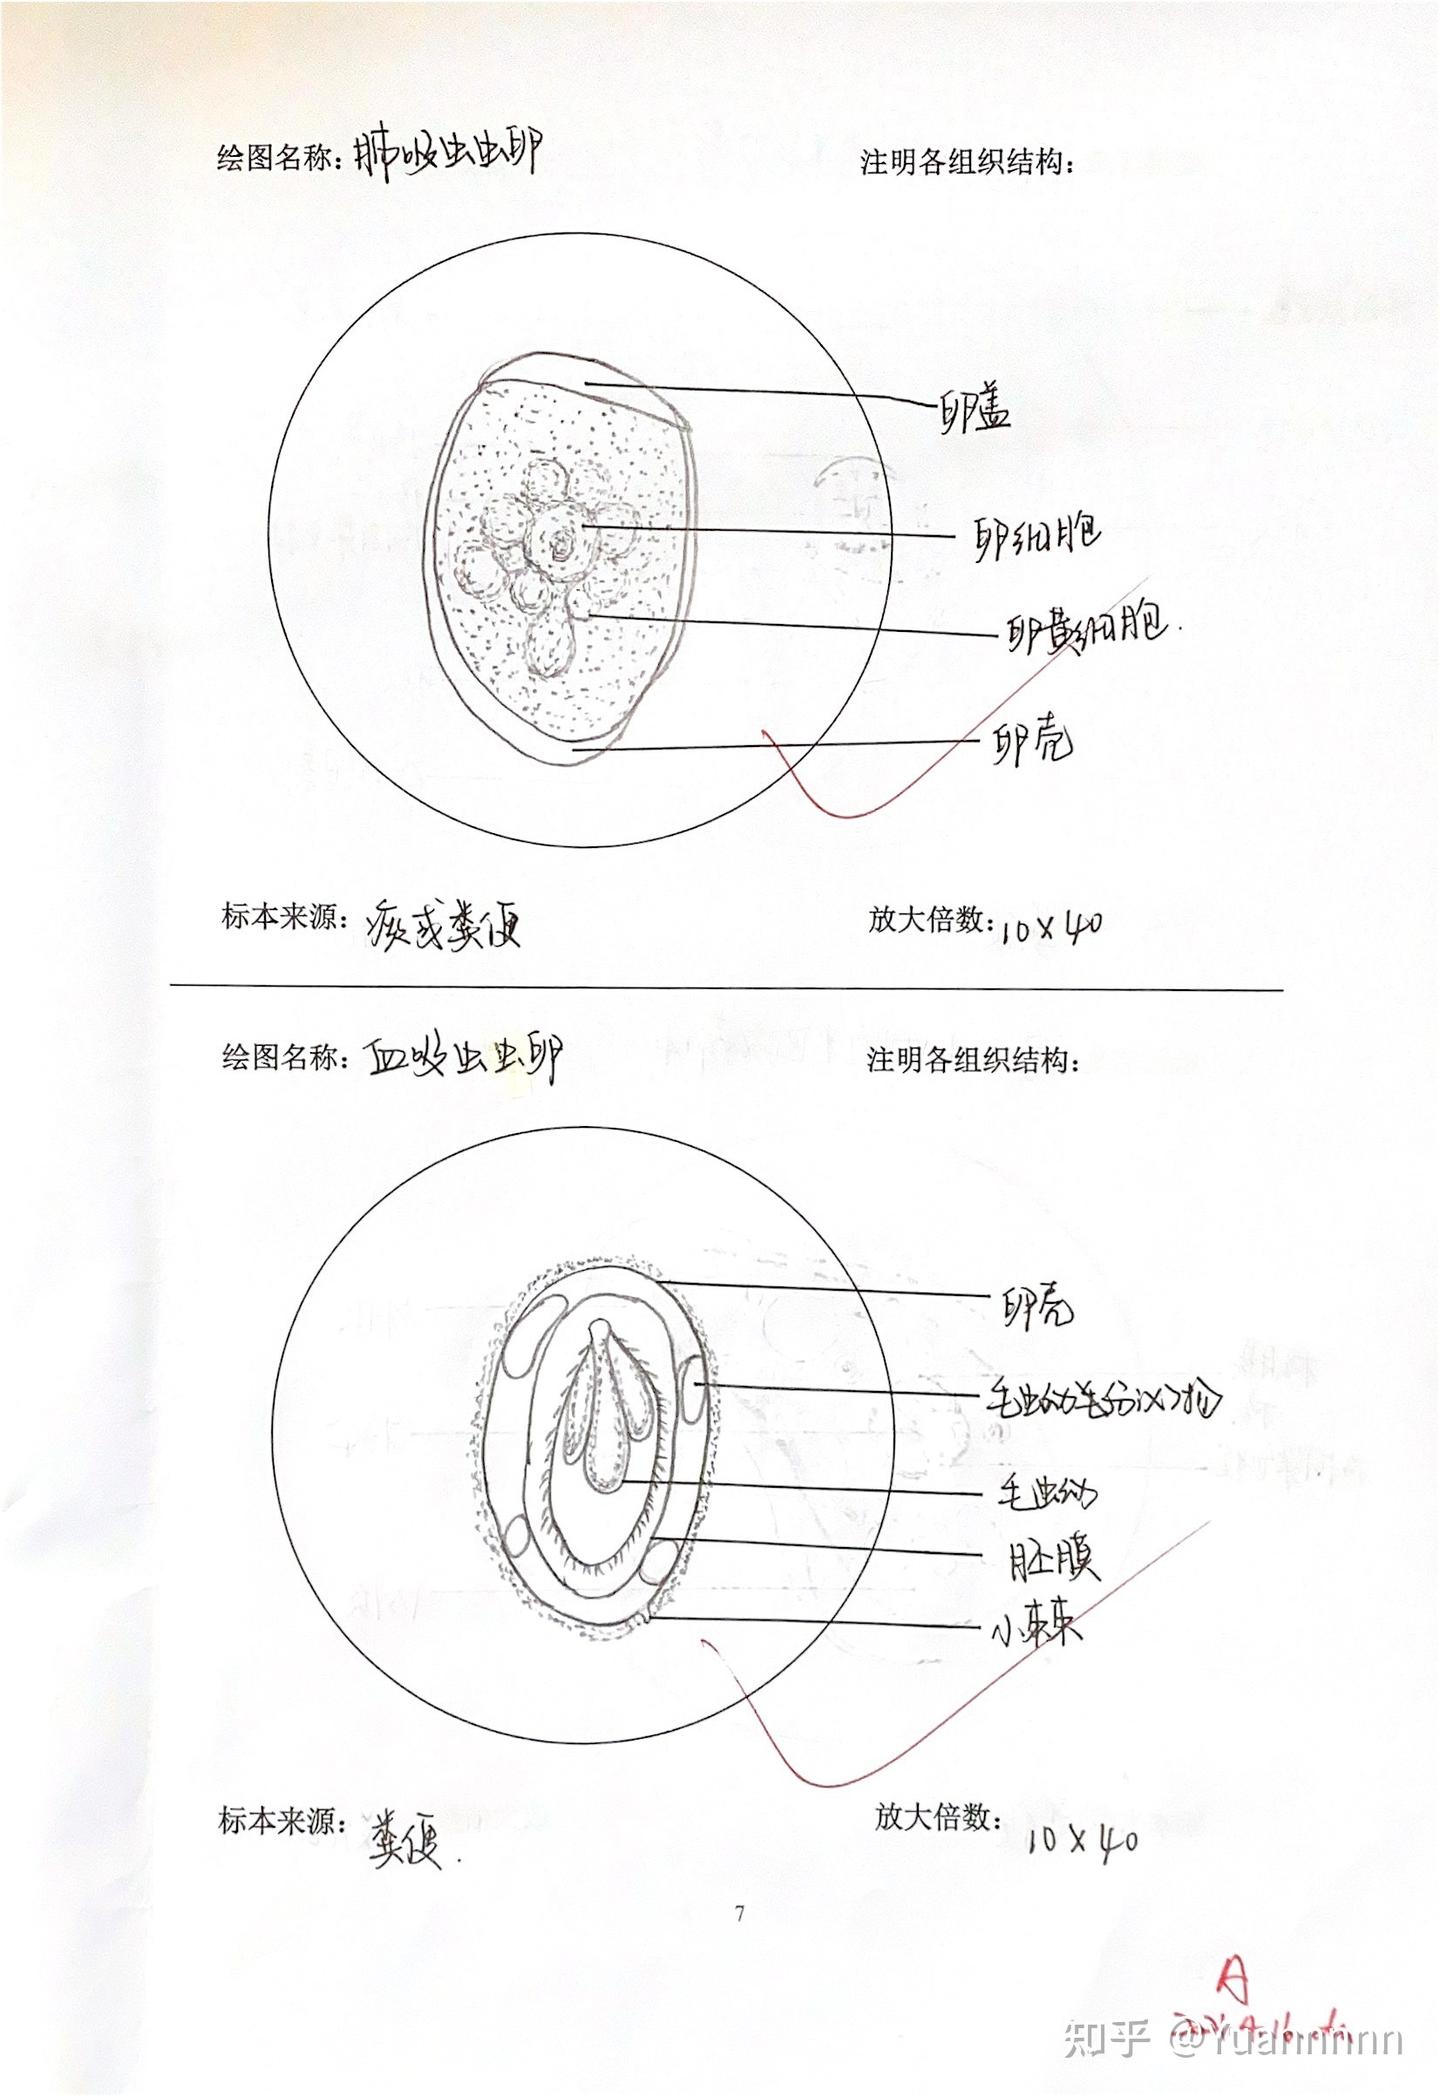 绘图名称：肺吸虫虫卵
注明各组织结构：
卵盖
卵细胞
卵黄细胞.
卵壳
标本来源：痰或粪便
放大倍数：10×40
绘图名称：血吸虫虫卵
注明各组织结构：
卵壳
毛蚴
胚膜
小棘
标本来源：粪便.
放大倍数：10×40
7
A
知乎 @Yuannnnn